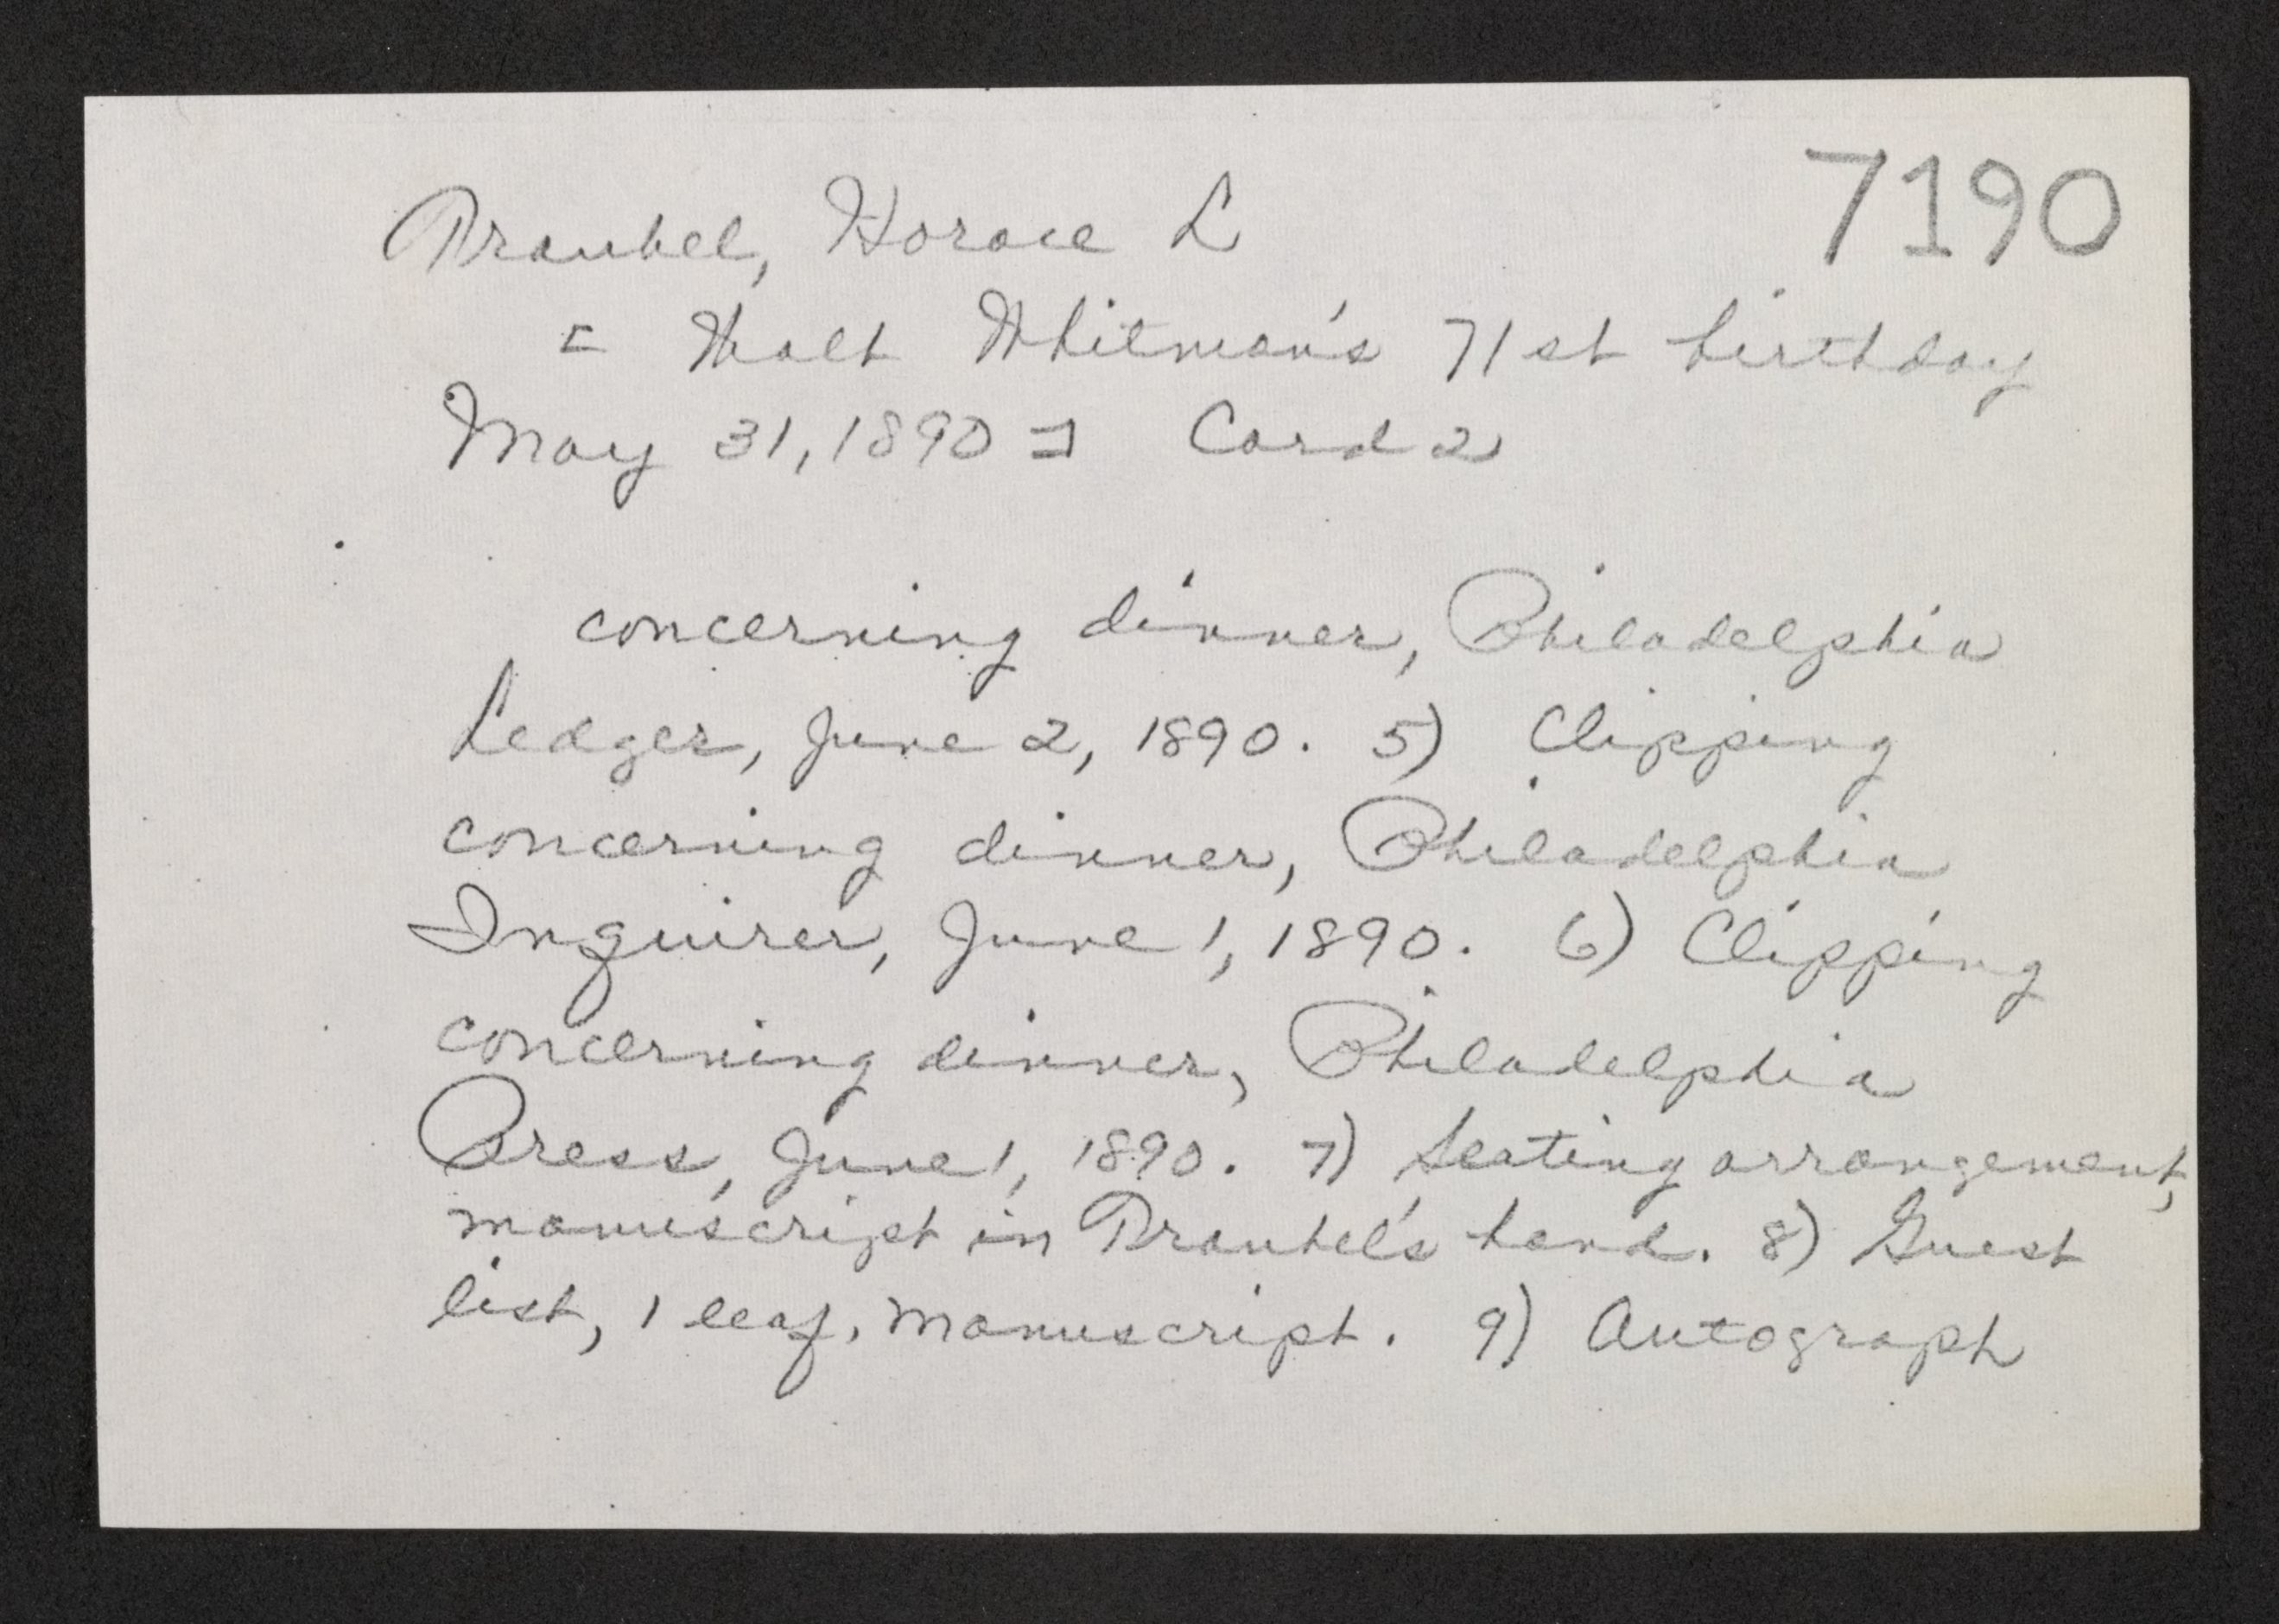 7190
Traubel, Horace L
[Walt Whitman's 71st birthday
May 31, 1890] Card 2
concerning dinner, Philadelphia
Ledger, June 2, 1890. 5) Clipping
concerning dinner, Philadelphia
Inquirer, June 1, 1890. 6) Clipping
concerning dinner, Philadelphia
Press, June 1, 1890. 7) Seating arrangement,
manuscript in Traubel's hand. 8) Guest
list, 1 leaf, manuscript. 9) Autograph